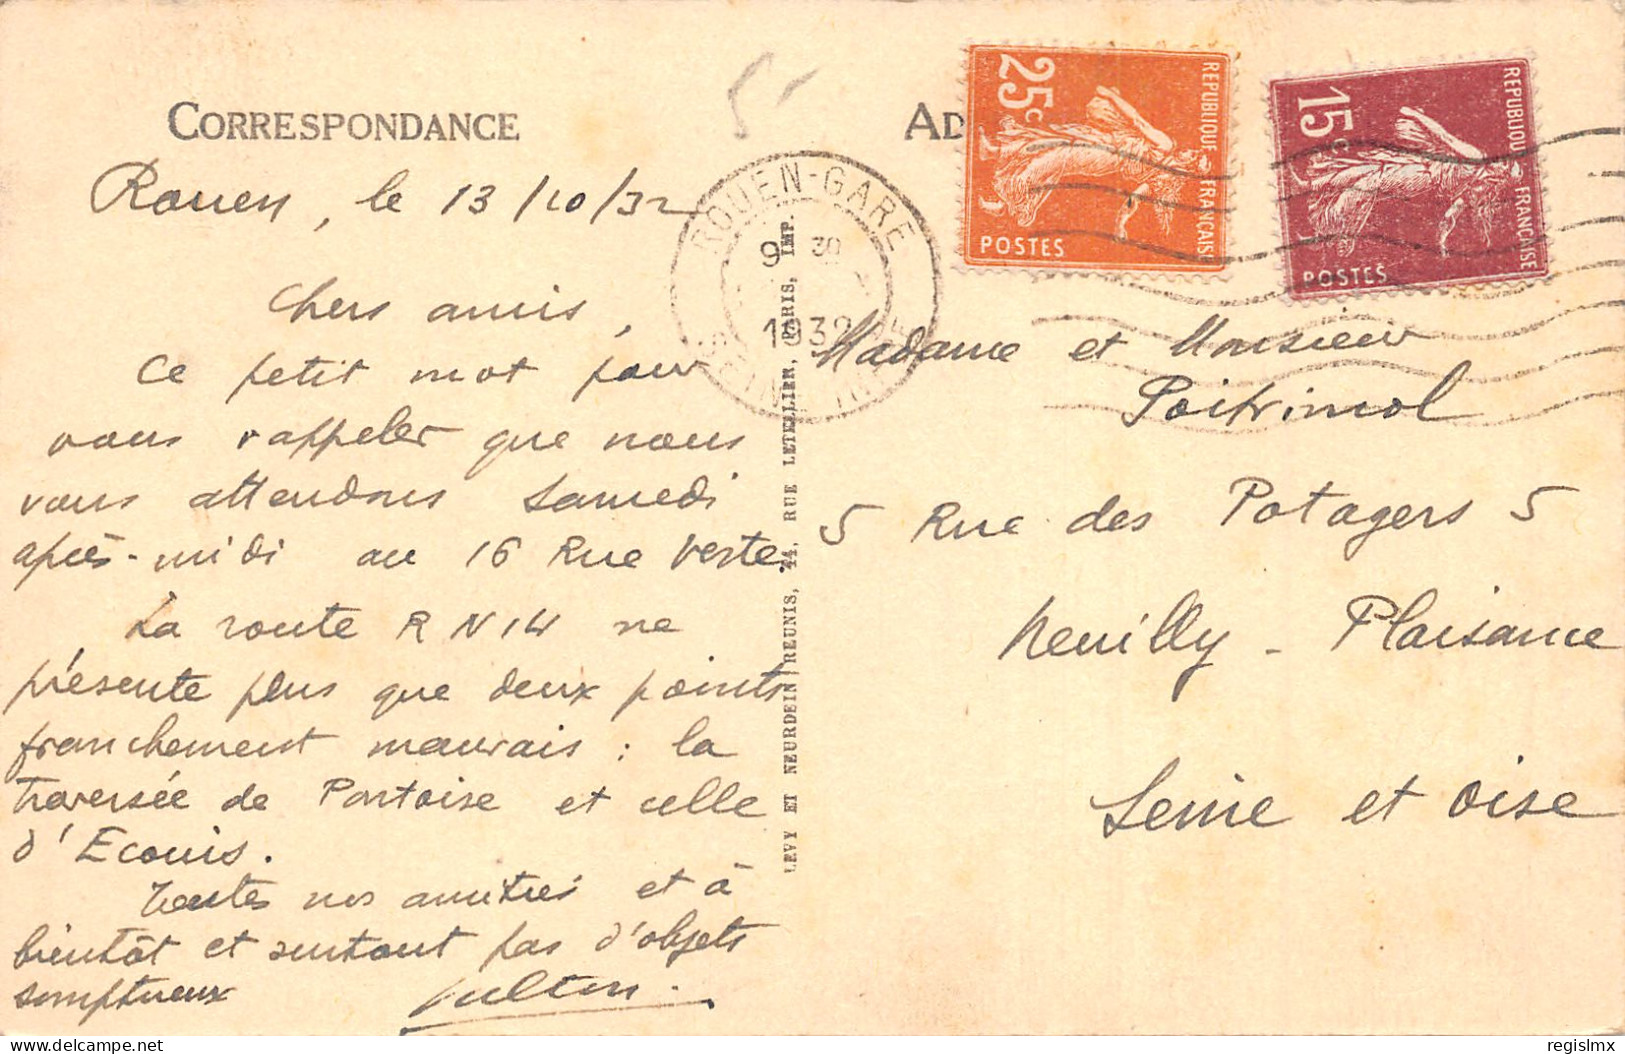 CORRESPONDANCE
Rouen, le 13/10/32
Chers amis,
Ce petit mot pour
vous rappeler que nous
vous attendons samedi
après-midi au 16 Rue Verte.
La route RN14 ne
présente plus que deux points
franchement mauvais : la
traversée de Pontoise et celle
d'Ecouis.
Toutes nos amitiés et à
bientôt et surtout pas d'objets
somptueux
LEVY ET NEURDEIN REUNIS, 44, RUE LETELLIER, PARIS, IMP.
5
ROUEN-GARE
9 30
1932
SEINE INFRE
AD
25c
REPUBLIQUE FRANÇAISE
POSTES
15c
REPUBLIQUE FRANÇAISE
POSTES
Madame et Monsieur
Poitrimol
5 Rue des Potagers 5
Neuilly - Plaisance
Seine et Oise
delcampe.net
regislmx